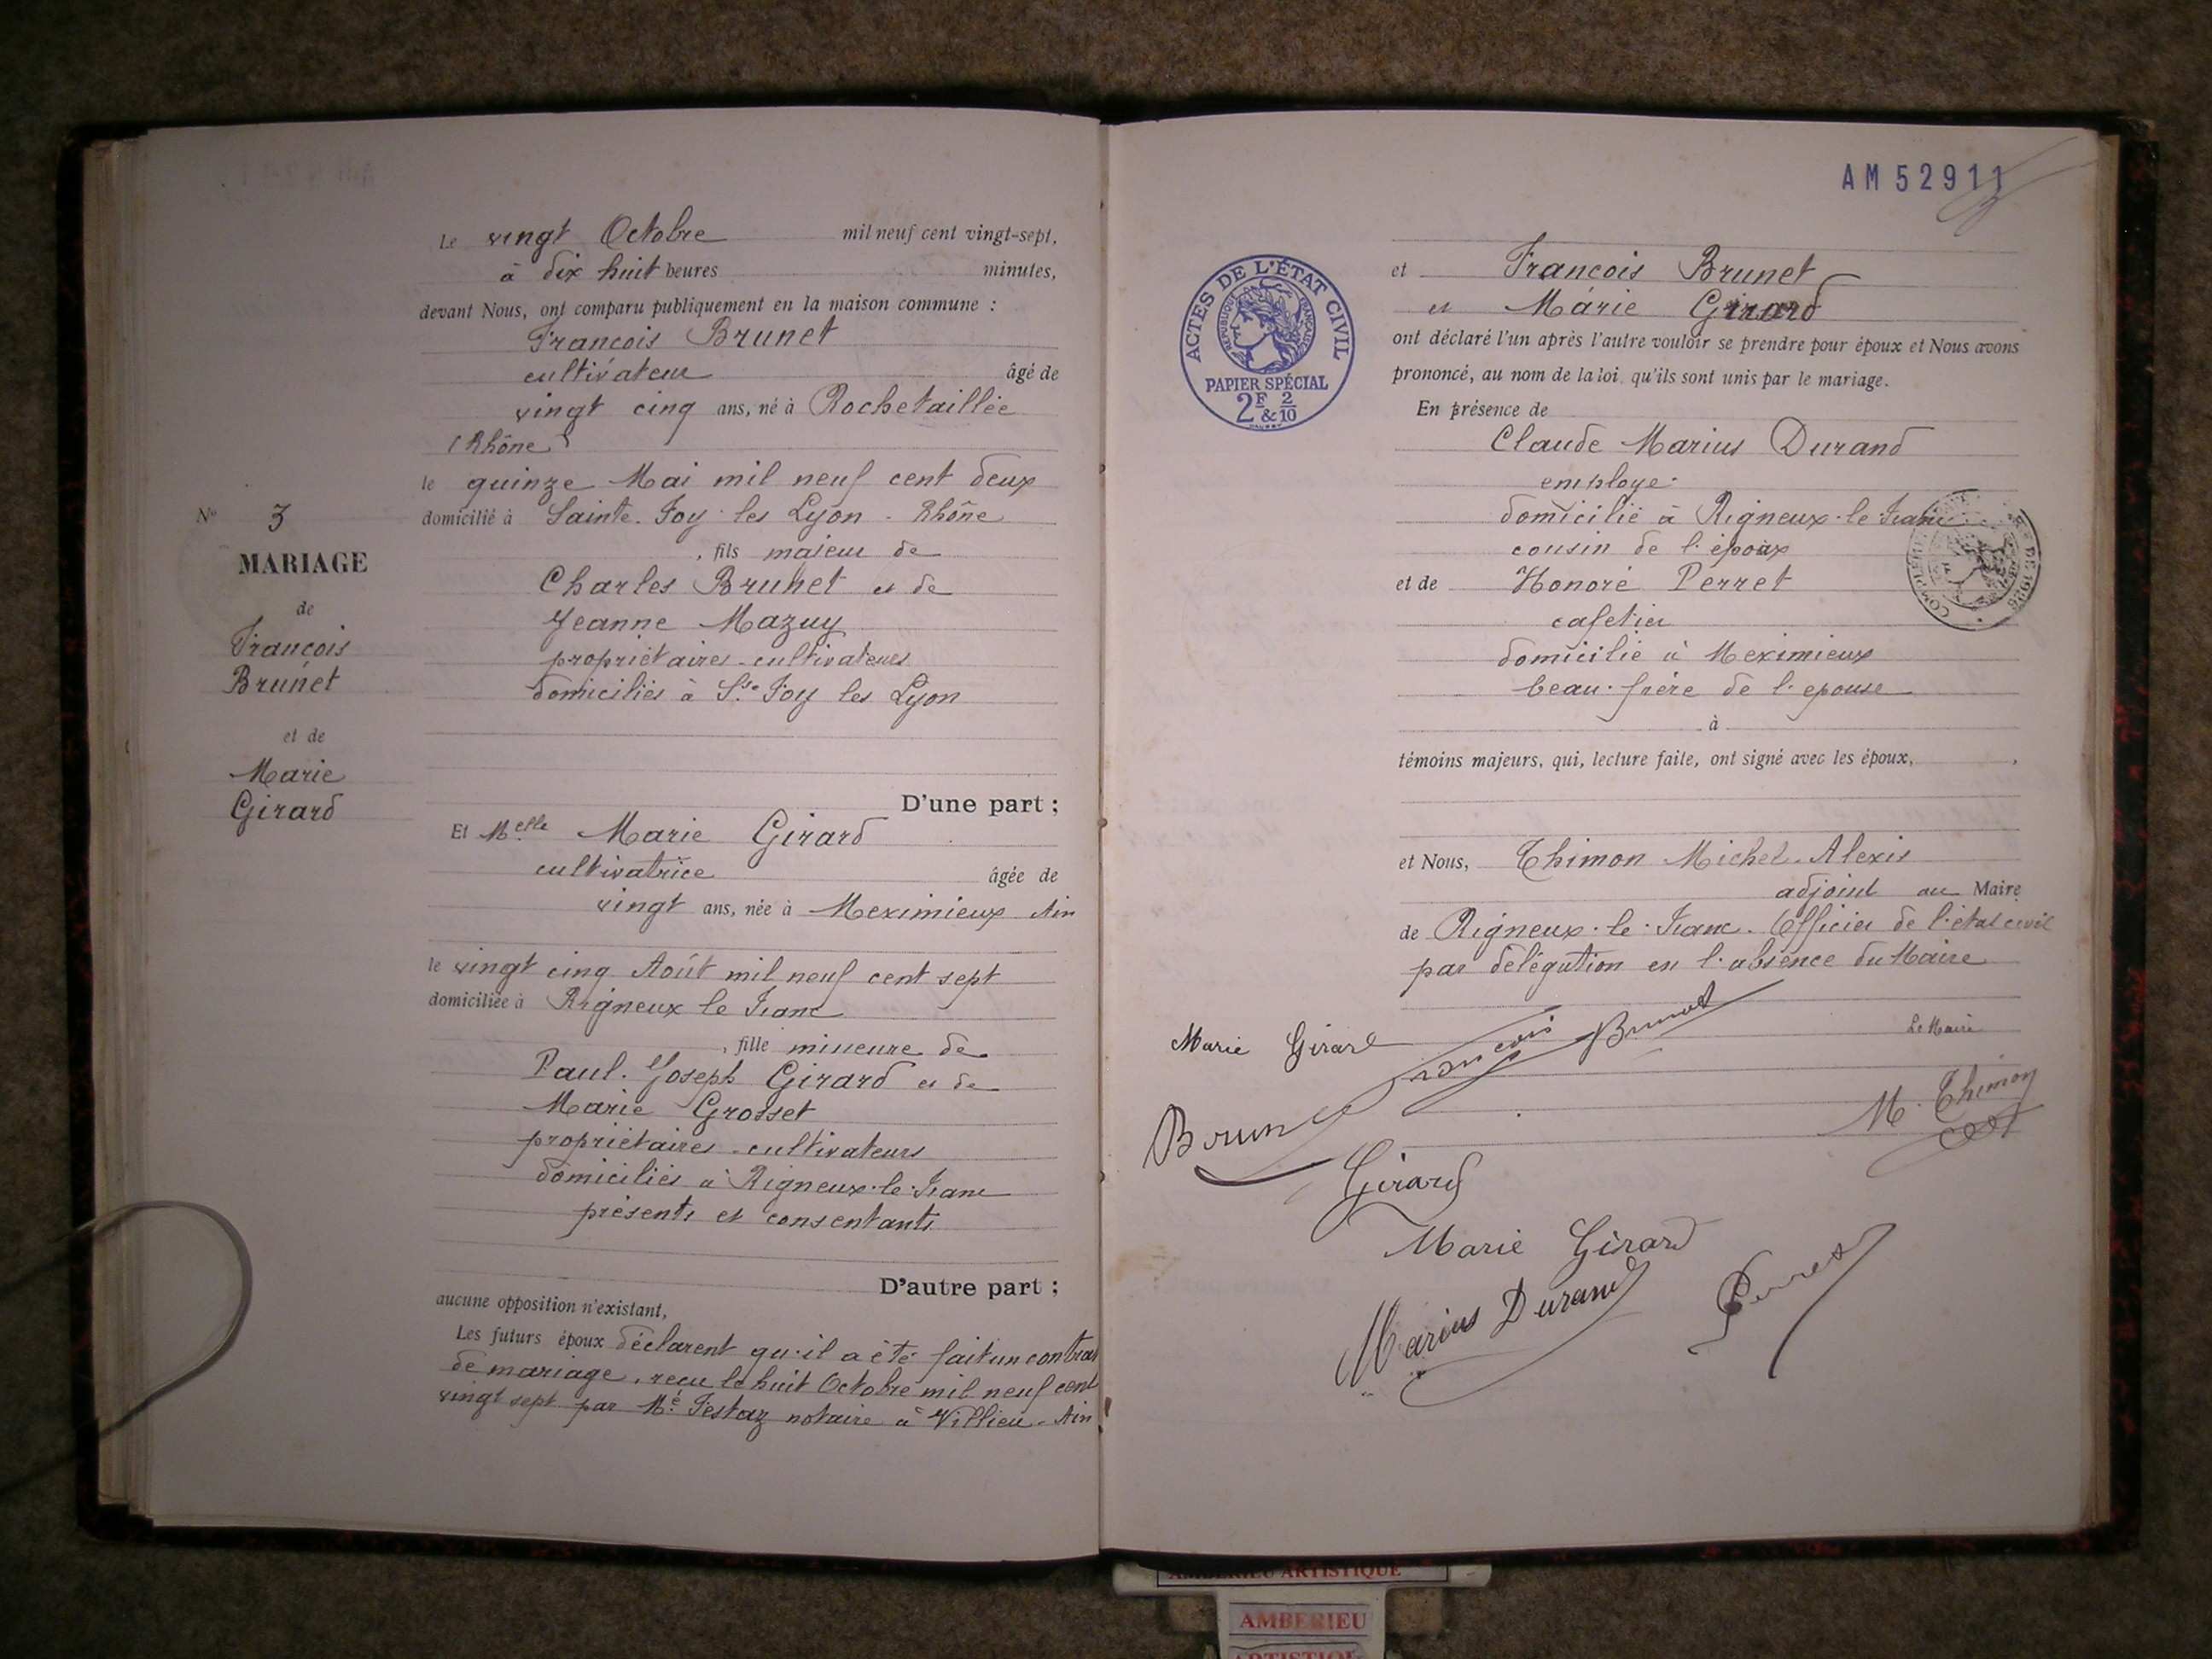 Le vingt Octobre mil neuf cent vingt-sept,
à dix huit heures minutes,
devant Nous, ont comparu publiquement en la maison commune :
François Brunet
cultivateur âgé de
vingt cinq ans, né à Rochetaillée
(Rhône)
le quinze Mai mil neuf cent deux
domicilié à Sainte-Foy-les Lyon - Rhône
, fils majeur de
Charles Brunet et de
Jeanne Mazuy
propriétaires-cultivateurs
domiciliés à Ste Foy les Lyon
D'une part ;
No 3
MARIAGE
de
François
Brunet
et de
Marie
Girard
Et Melle Marie Girard
cultivatrice âgée de
vingt ans, née à Meximieux Ain
le vingt cinq Août mil neuf cent sept
domiciliée à Rigneux le Franc
, fille mineure de
Paul-Joseph Girard et de
Marie Grosset
propriétaires-cultivateurs
domiciliés à Rigneux-le-Franc
présents et consentants
D'autre part ;
aucune opposition n'existant,
Les futurs époux déclarent qu'il a été fait un contrat
de mariage, reçu le huit Octobre mil neuf cent
vingt sept par Me Festaz notaire à Villieu-Ain
AM 52911
ACTES DE L'ÉTAT CIVIL
RÉPUBLIQUE FRANÇAISE
PAPIER SPÉCIAL
2F & 2/10
et François Brunet
et Marie Girard
ont déclaré l'un après l'autre vouloir se prendre pour époux et Nous avons
prononcé, au nom de la loi, qu'ils sont unis par le mariage.
En présence de
Claude Marius Durand
employé
domicilié à Rigneux-le-Franc
cousin de l'époux
et de Honoré Perret
cafetier
domicilié à Meximieux
beau-frère de l'épouse
à
témoins majeurs, qui, lecture faite, ont signé avec les époux, ,
et Nous, Thimon Michel-Alexis
adjoint au Maire
de Rigneux-le-Franc. Officier de l'état civil
par délégation en l'absence du Maire
Le Maire
Marie Girard
François Brunet
M. Thimon
Brunet
Girard
Marie Girard
Marius Durand
Perret
AMBERIEU ARTISTIQUE
AMBERIEU
ARTISTIQUE